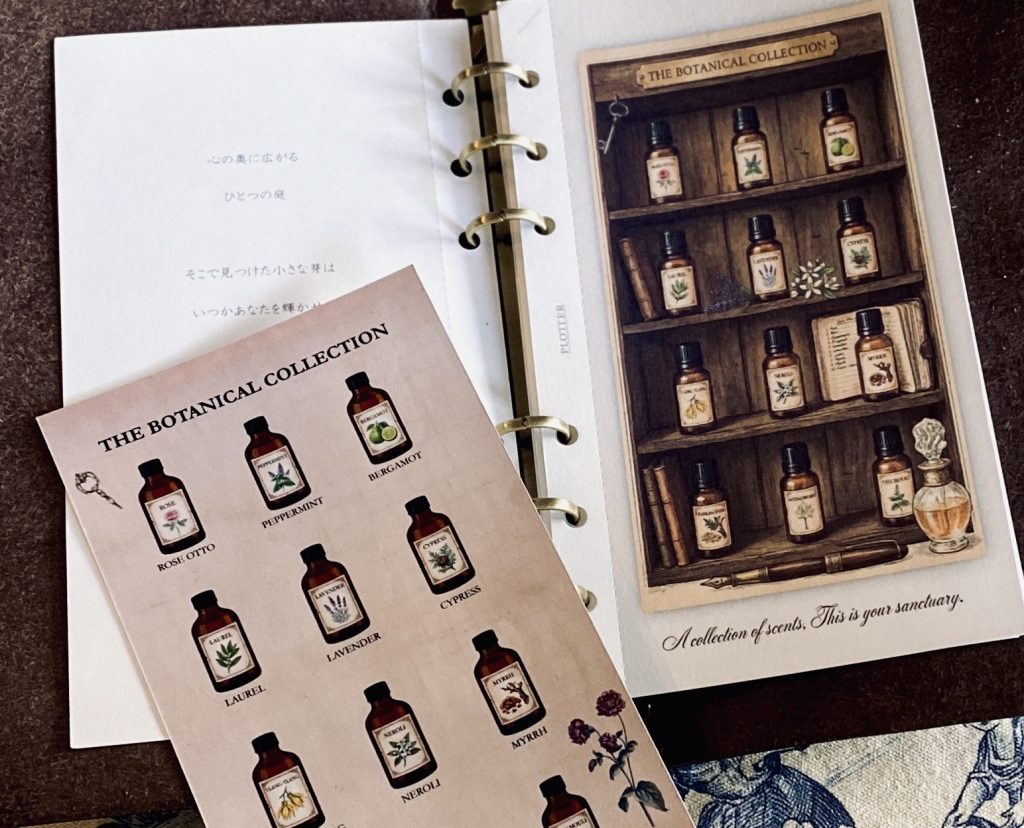 心の奥に広がる
ひとつの庭
そこで見つけた小さな芽は
いつかあなたを輝かせ
THE BOTANICAL COLLECTION
ROSE
ROSE OTTO
PEPPERMINT
PEPPERMINT
BERGAMOT
BERGAMOT
LAUREL
LAUREL
LAVENDER
LAVENDER
CYPRESS
CYPRESS
YLANG-YLANG
NEROLI
NEROLI
MYRRH
MYRRH
PLOTTER
THE BOTANICAL COLLECTION
ROSE OTTO
PEPPERMINT
BERGAMOT
LAUREL
LAVENDER
CYPRESS
YLANG-YLANG
NEROLI
MYRRH
PATCHOULI
A collection of scents, This is your sanctuary.